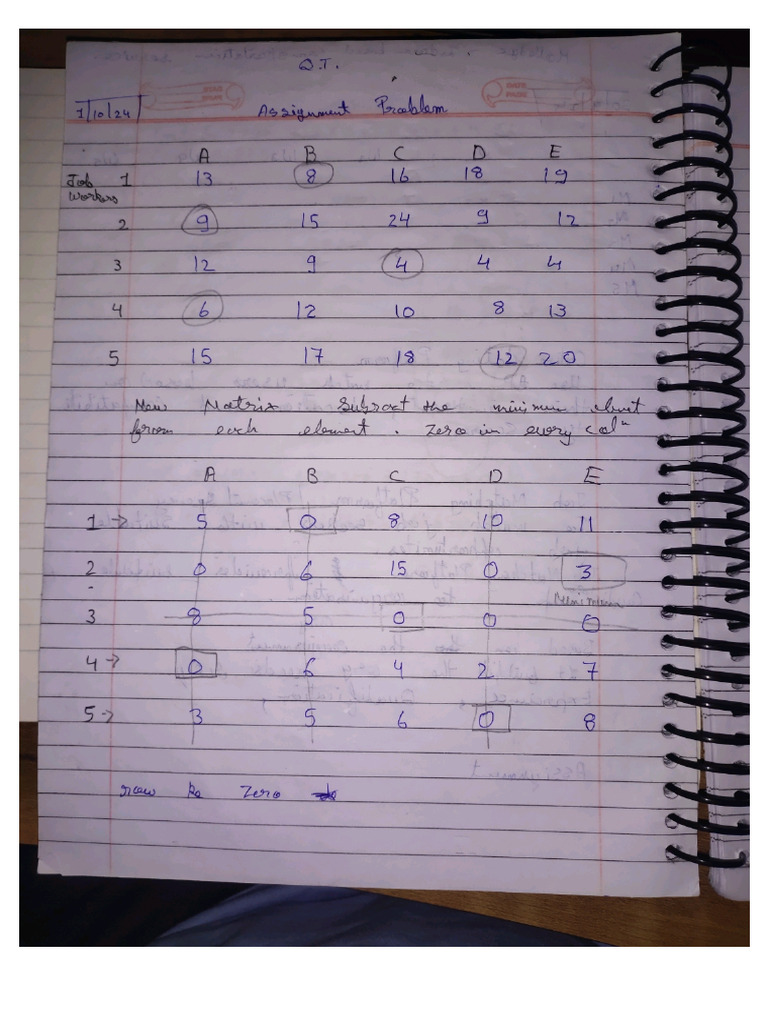 Q.T.
1/10/24
Assignment Problem
A B C D E
Job 1 13 8 16 18 19
Workers
2 9 15 24 9 12
3 12 9 4 4 4
4 6 12 10 8 13
5 15 17 18 12 20
New Matrix Subract the minimum
from each element. Zero in every colⁿ
A B C D E
1 → 5 0 8 10 11
2 0 6 15 0 3
Minimum
3 8 5 0 0 0
4 → 0 6 4 2 7
5 → 3 5 6 0 8
row ke zero